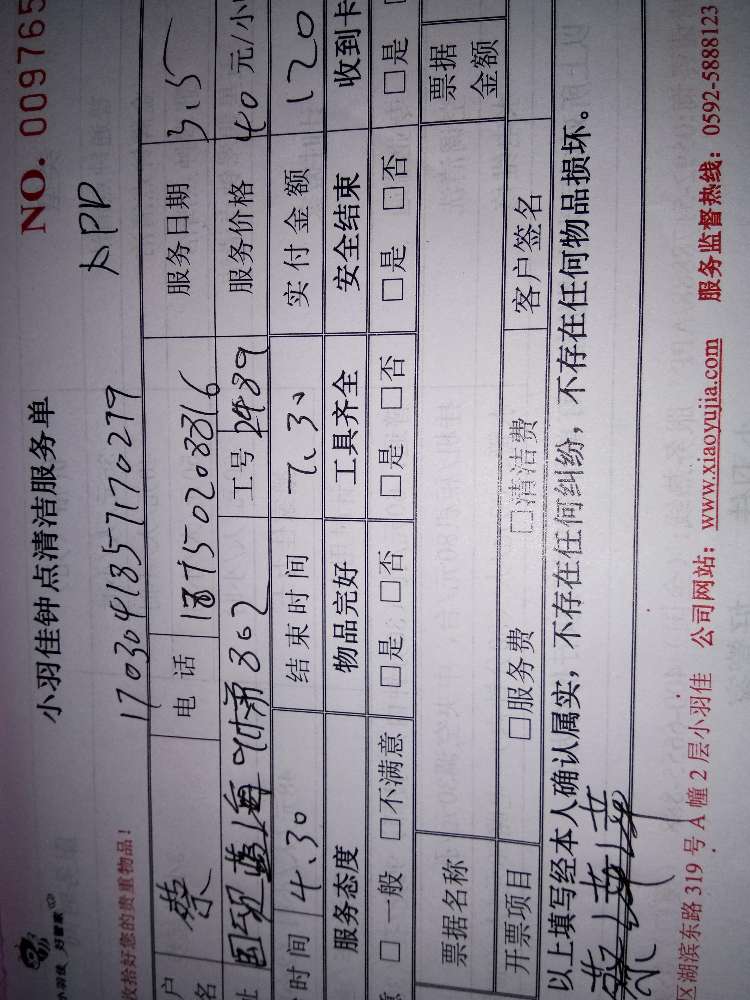 小羽佳 好管家
小羽佳钟点清洁服务单
NO. 009765
收拾好您的贵重物品！
170304135717 0279
APP
户
名
蔡
电 话
服务日期
3.5
址
802
工号
2489
服务价格
40 元/小
时间
4.30
结束时间
7.30
实付金额
120
服务态度
物品完好
工具齐全
安全结束
收到卡
意 □一般 □不满意
□是 □否
□是 □否
□是 □否
□是
票据名称
票据
金额
开票项目
□服务费
□清洁费
客户签名
以上填写经本人确认属实，不存在任何纠纷，不存在任何物品损坏。
区湖滨东路 319 号 A 幢 2 层小羽佳 公司网站：www.xiaoyujia.com 服务监督热线：0592-5888123